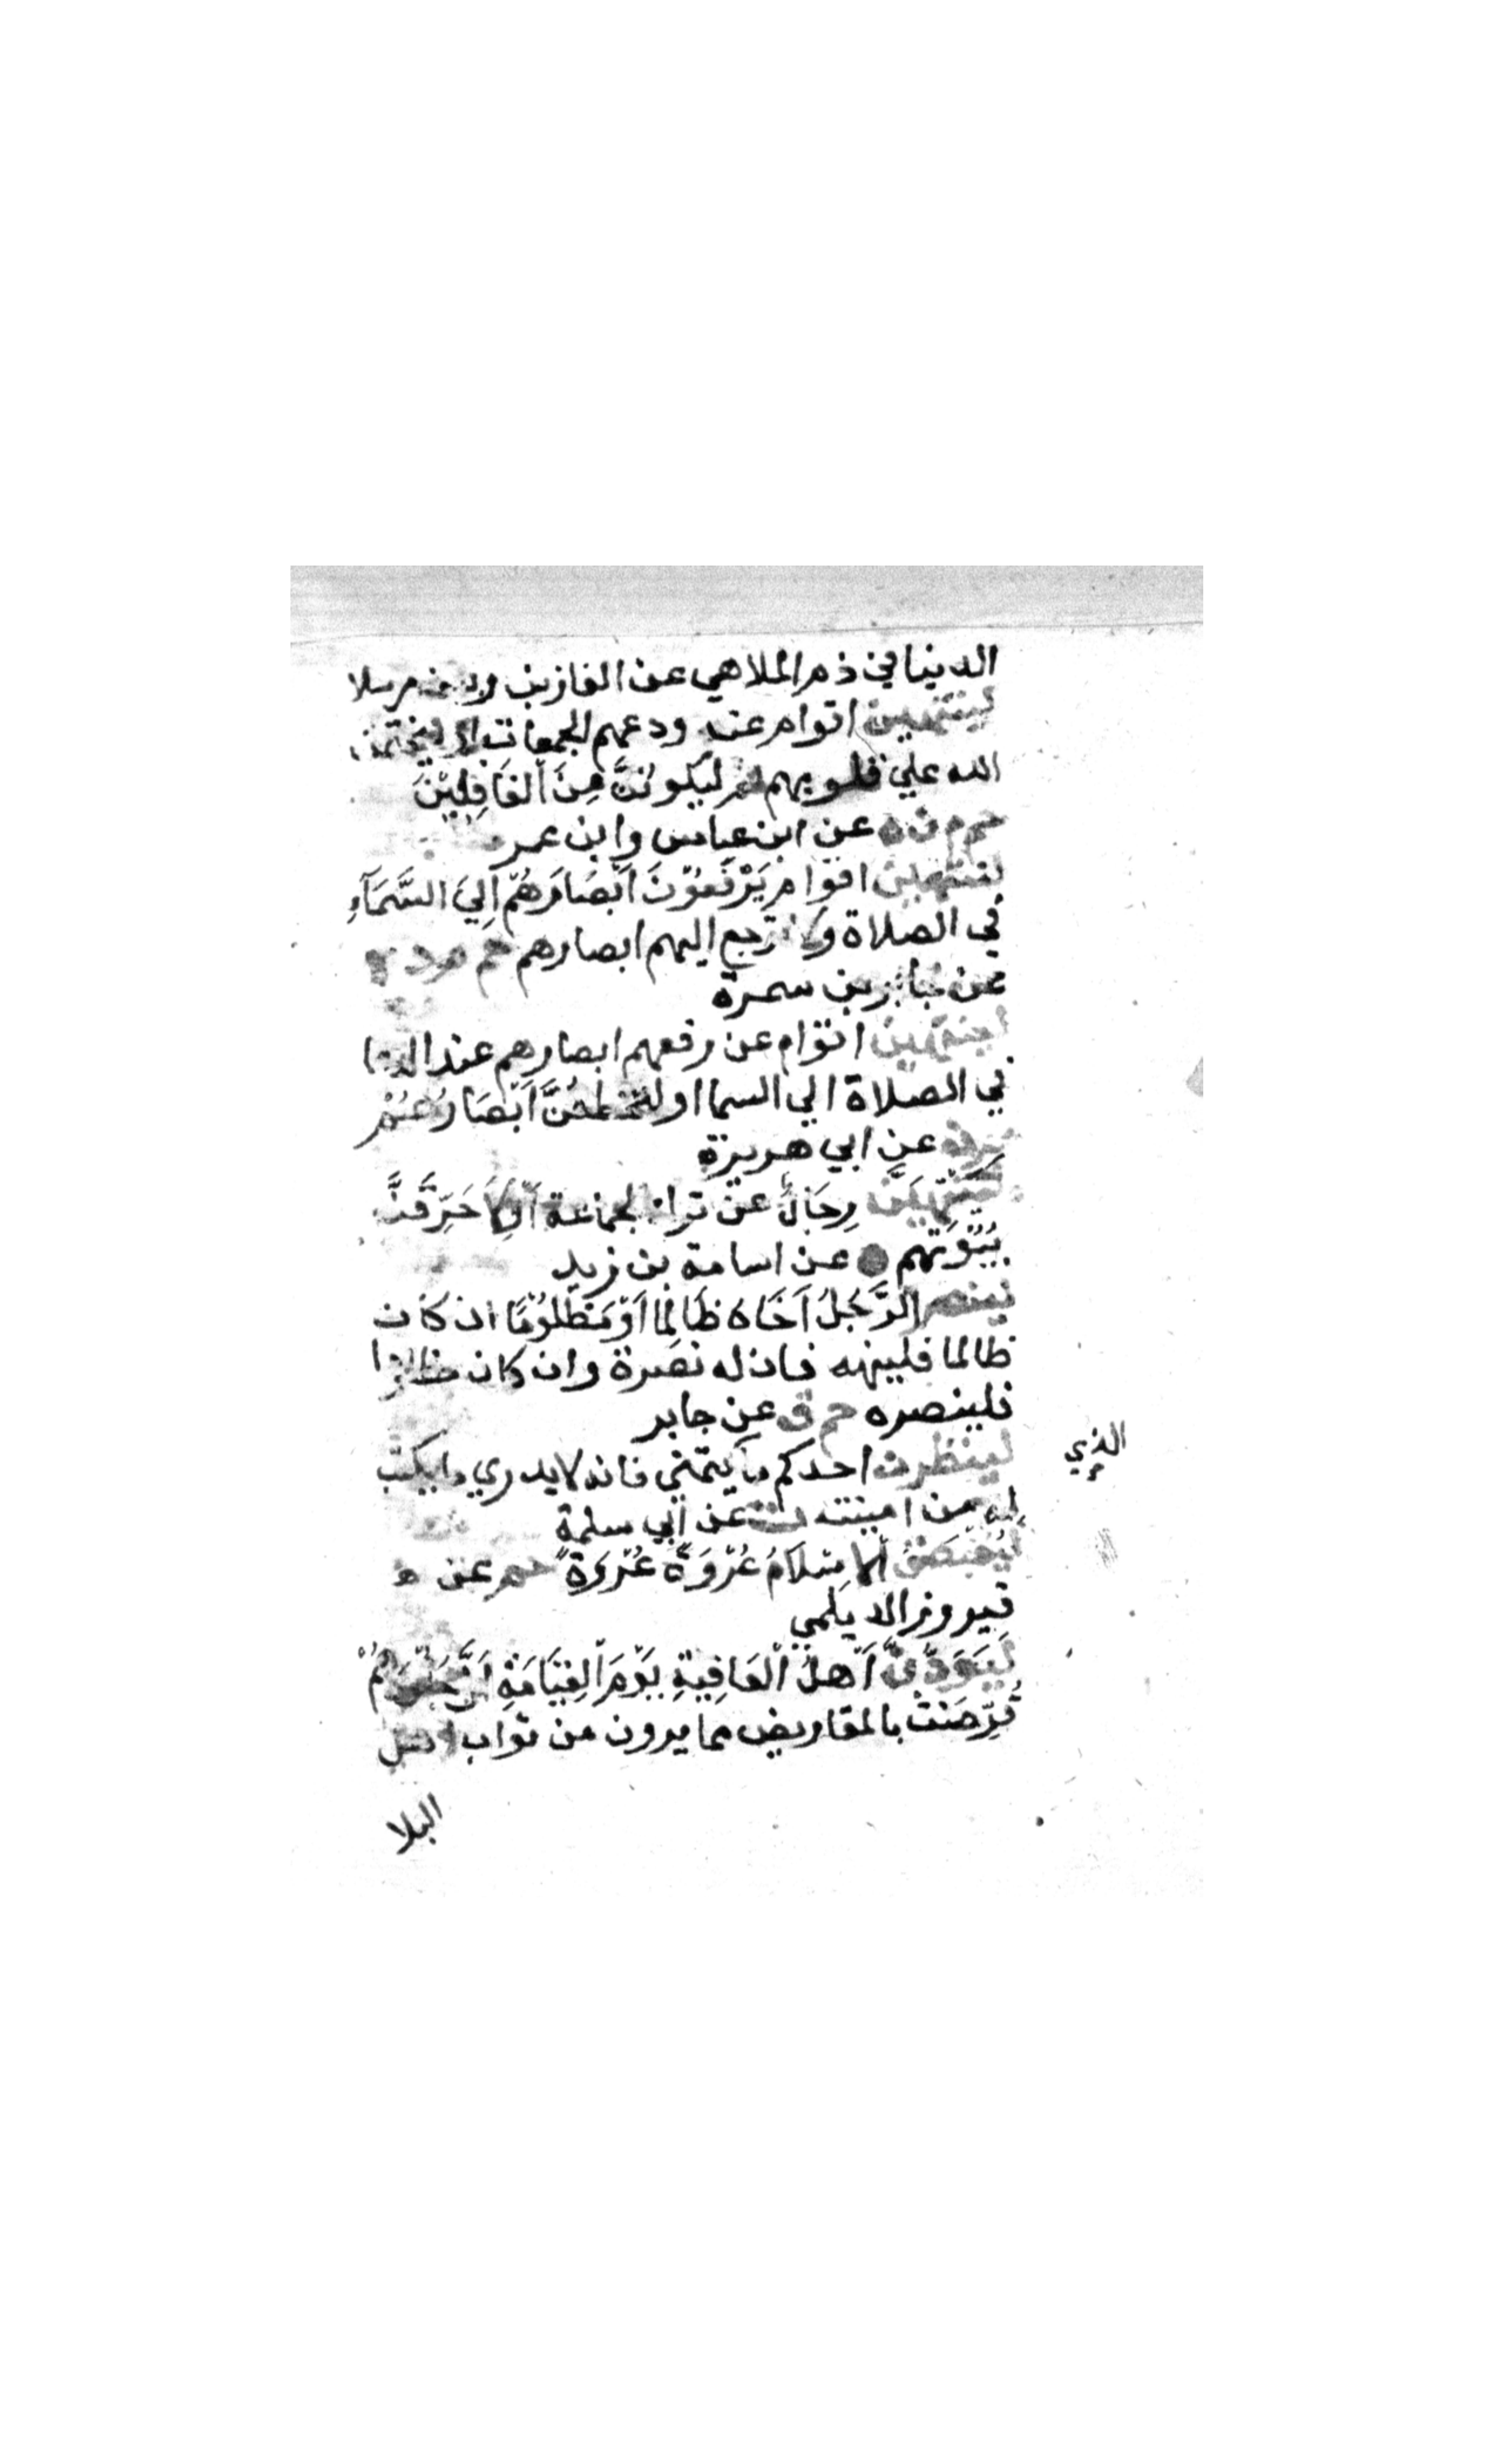 الدينا في ذم الملاهي عن الغازبن ربيعه مرسلا
لينتهين اقوام عن ودعهم الجمعات او ليختمن
الله علي قلوبهم ثم ليكونُنَّ مِنَ الغَافِلِيْنَ
حم م ن ه عن ابن عباس وابن عمر
لينتهين اقوام يَرْفَعُوْنَ اَبْصَارَهُمْ اِلَيَ السَّمَآءِ
في الصلاة ولا ترجع اليهم ابصارهم حم م د ه
عن جابر بن سمرة
لينتهين اقوام عن رفعهم ابصارهم عند الدعا
في الصلاة الي السما او لتخطفنَّ اَبْصَارُهُمْ
م ن عن ابي هريرة
لَيَنْتَهِيَنَّ رِجَالٌ عن ترك الجماعة اَوْ لَاُحَرِّقَنَّ
بُيُوْتَهم ه عن اسامة بن زيد
لينصر الرَّجُلُ اَخَاهُ ظَالِمًا اَوْ مَظْلُوْمًا ان كان
ظالما فلينهه فانه له نصرة وان كان مظلوما
فلينصره حم ق عن جابر
لينظرن احدكم ما يتمني فانه لا يدري ما يكتب
الذي
له من امنيته ت عن ابي سلمة
لَيُنْقَضَنَّ الاِسْلَامُ عُرْوَةً عُرْوَةً حم عن
فيروز الديلمي
لَيَوَدَّنَّ اَهْلُ الْعَافِيةِ يَوْمَ الْقِيَامَةِ اَنَّ جُلُوْدَهُمْ
قُرِّضَتْ بالمقاريض مما يرون من ثواب اهل
البلا